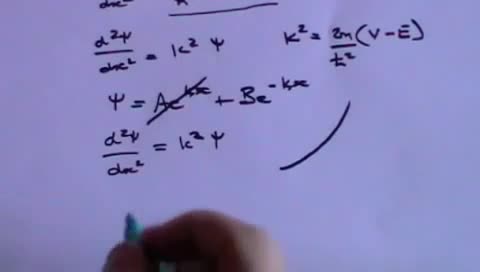 dx²
d²Ψ/dx² = k² Ψ    k² = 2m/ħ² (V - E)
Ψ = Ae^kx + Be^-kx
d²Ψ/dx² = k² Ψ